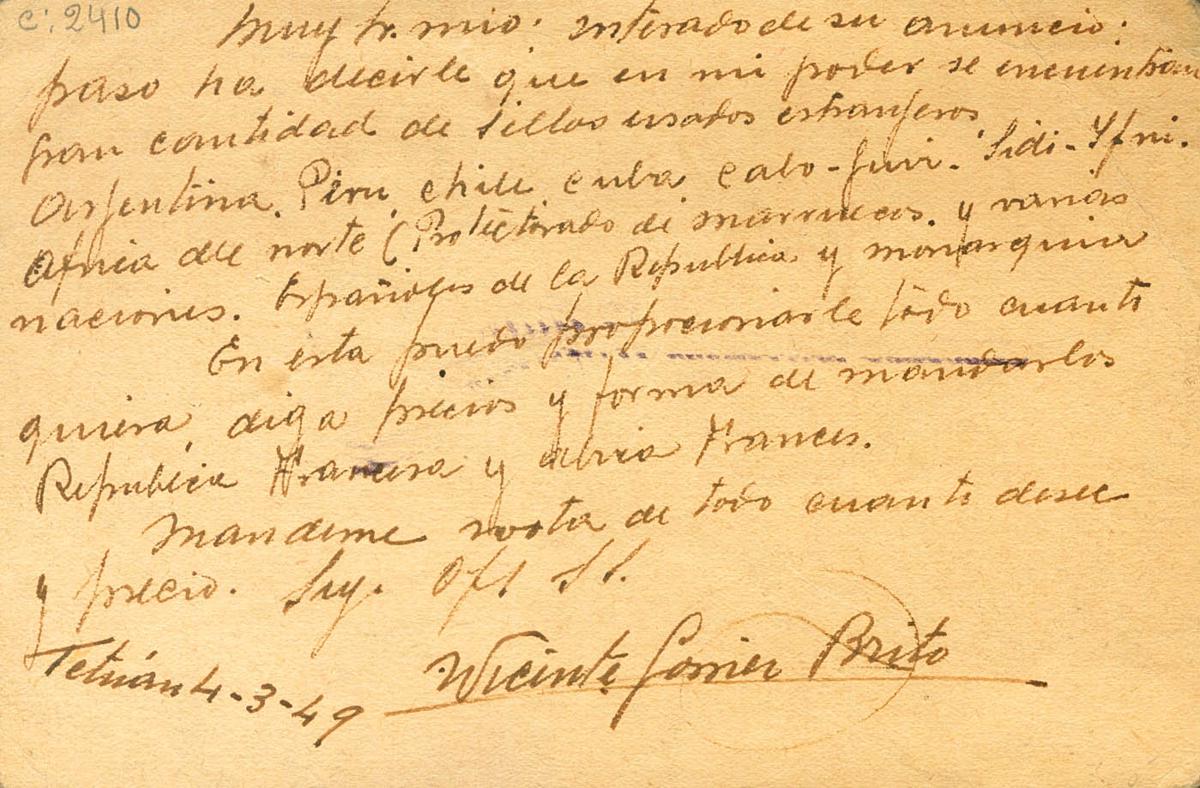 C: 2410
Muy Sr. mio: Enterado de su anuncio:
paso ha decirle que en mi poder se encuentran
gran cantidad de Sellos usados estranjeros
Argentina. Peru, chile, cuba cabo-Juvi. Sidi-Yfni.
Africa del norte (Protectorado de marruecos. y varias
naciones. Españoles de la Republica y monarquia
En esta puedo proporcionarle todo cuanto
quiera, diga precios y forma de mandarlos
Republica Francesa y Frances.
Mandeme nota de todo cuanto desee
y precio. Suy. S.S.
Tetuán 4-3-49
Vicente Brito